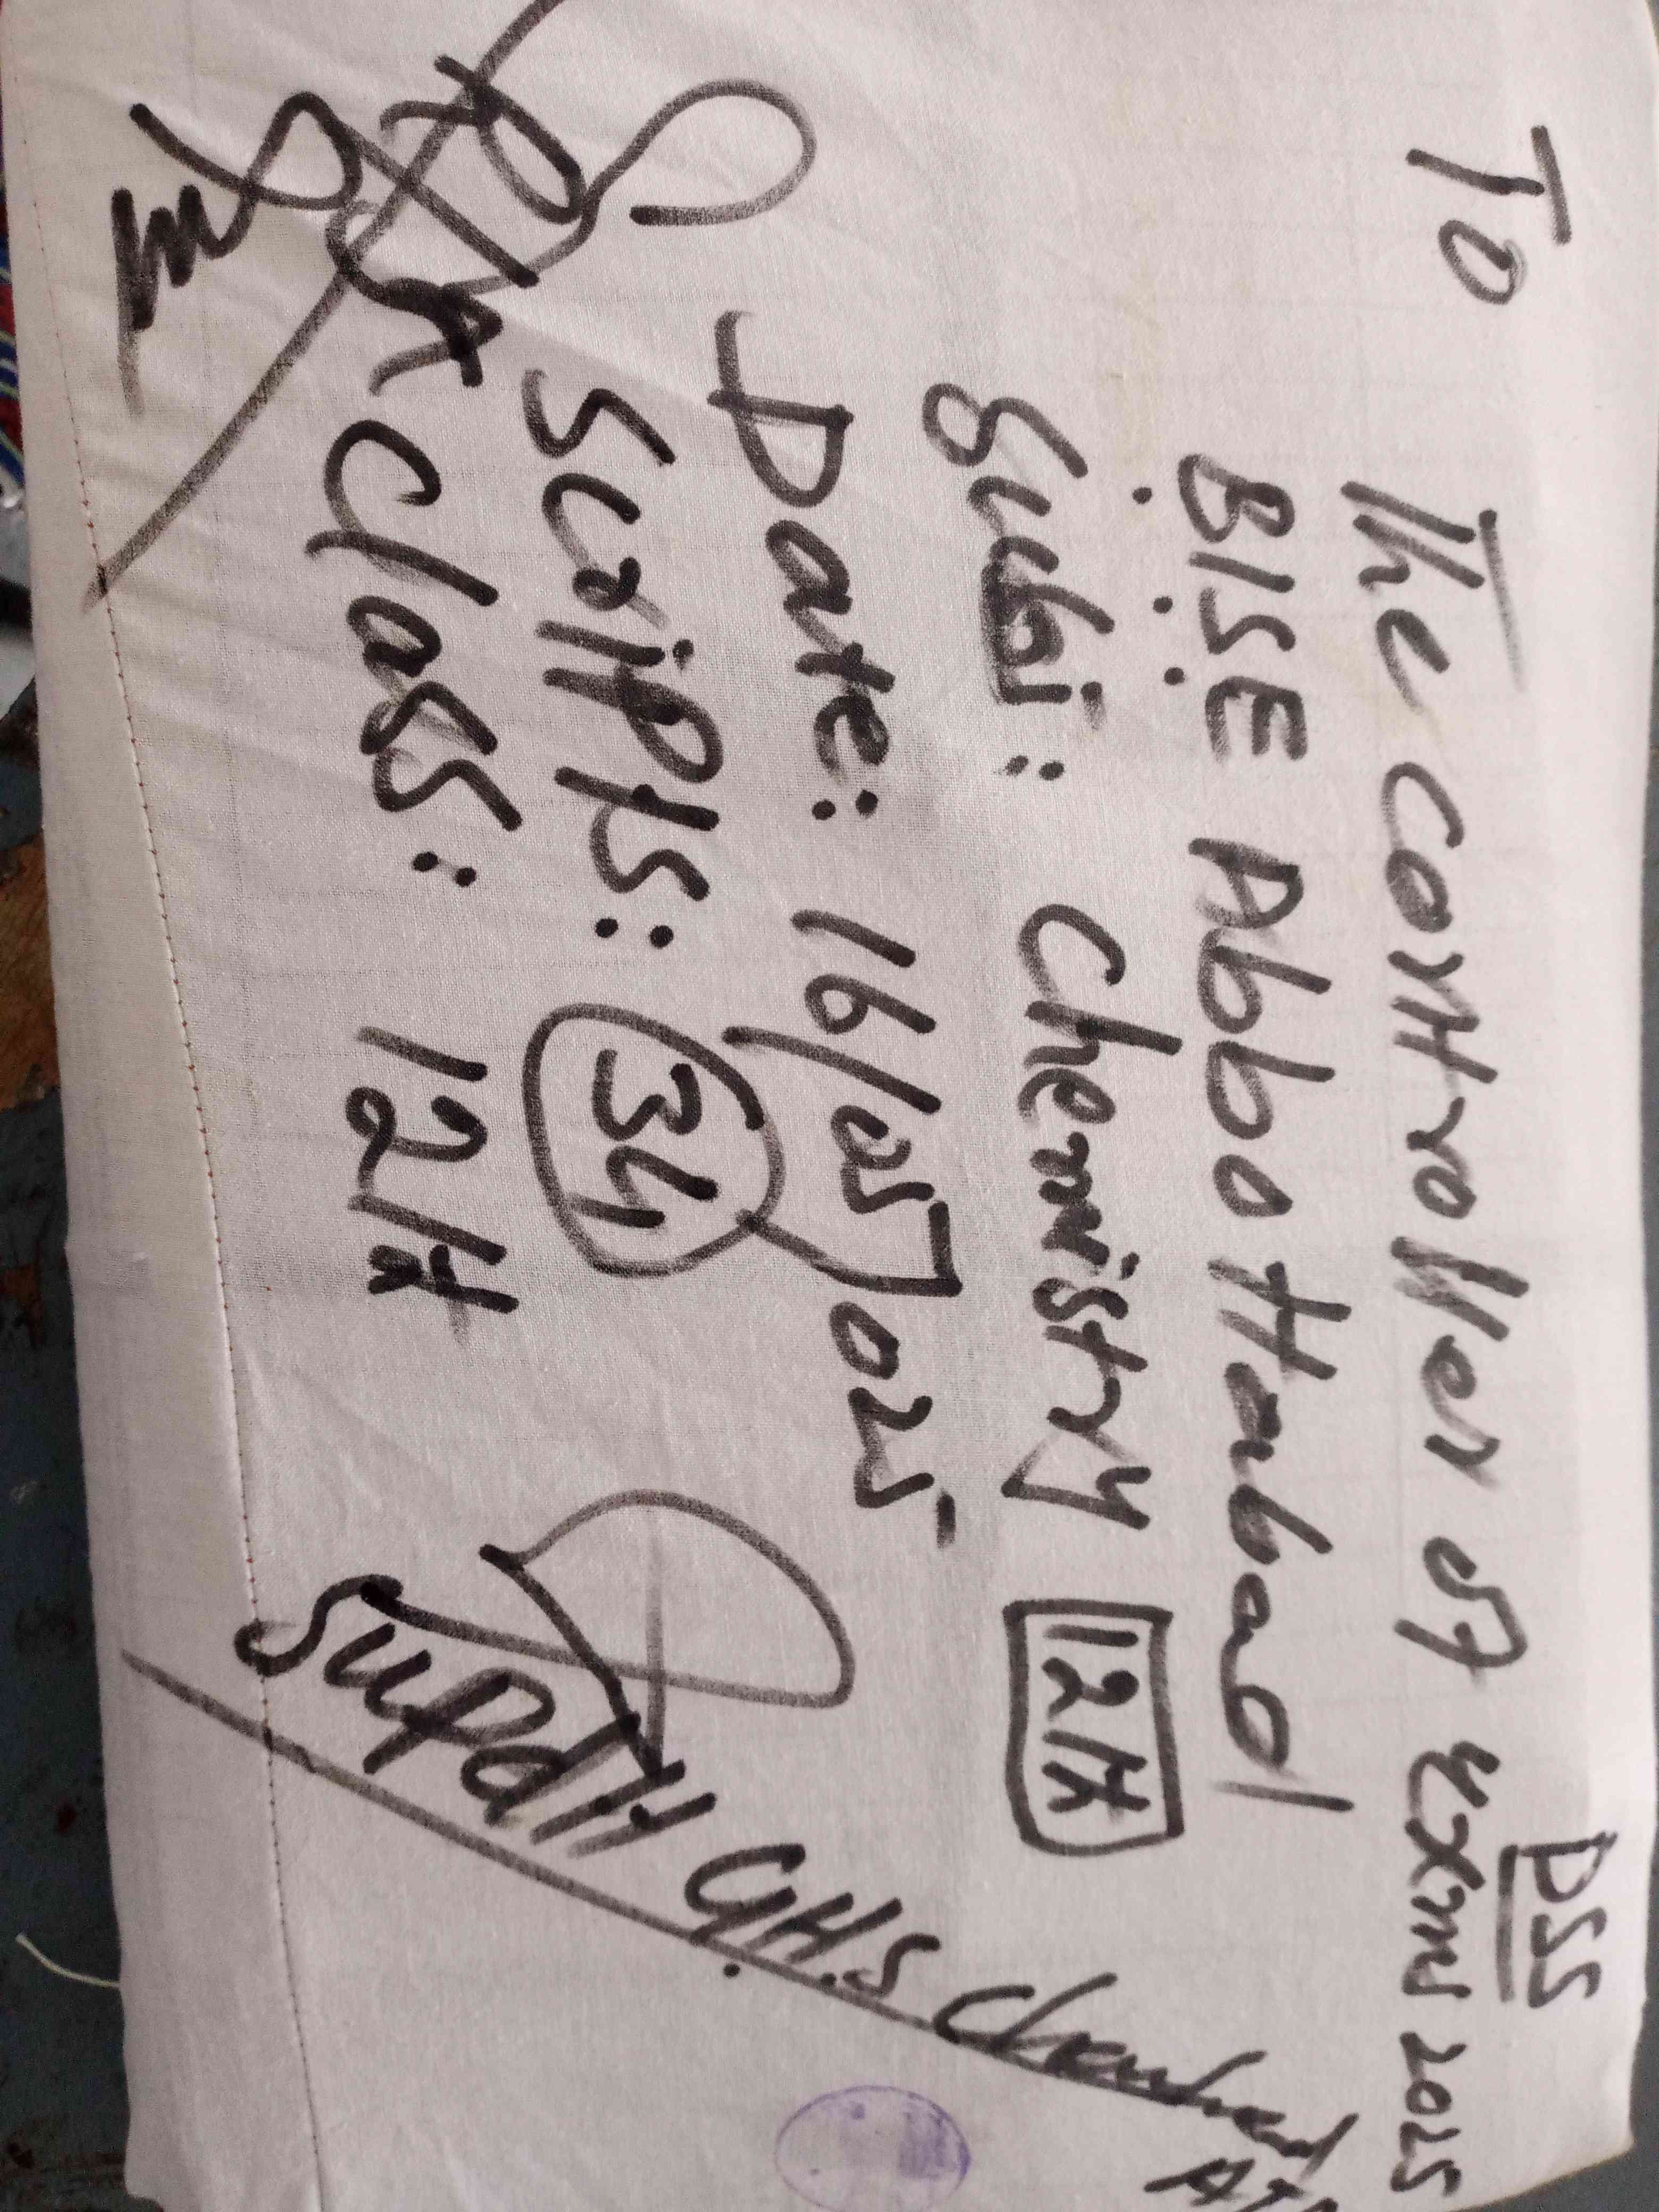 DSS
To
The Controller of Exam 2025
B.I.S.E Abbottabad
Subj: Chemistry 12th
Date: 16/05/2025
Scripts: 34
Class: 12th
Supdtt G.H.S